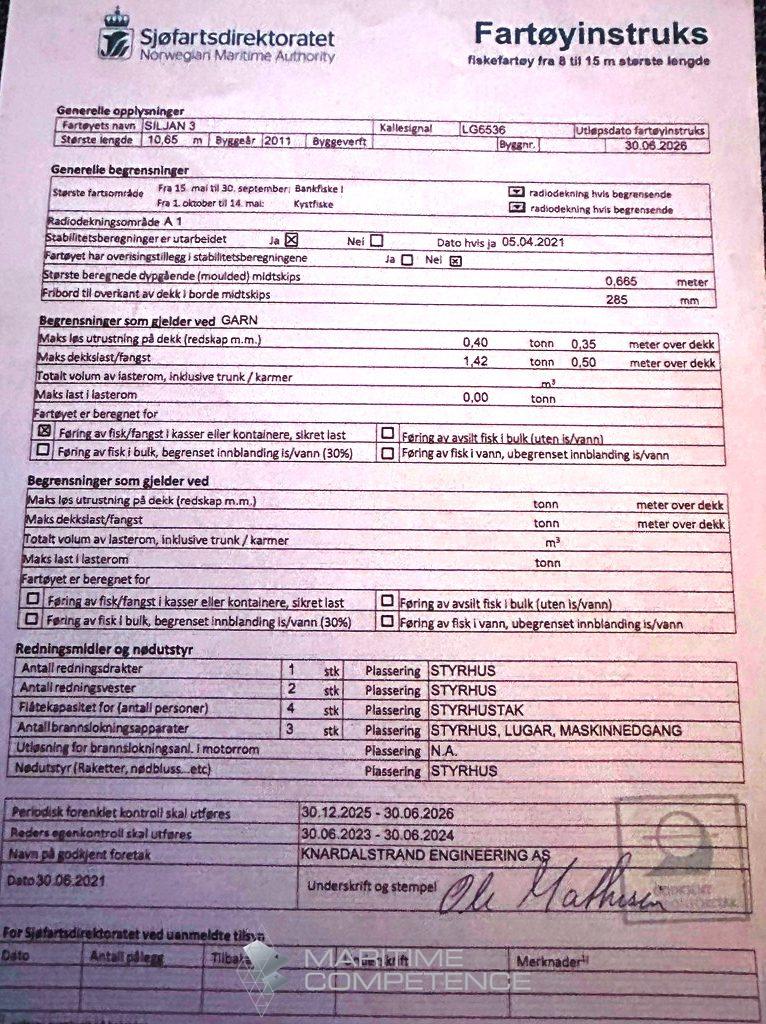 Sjøfartsdirektoratet
Norwegian Maritime Authority
Fartøyinstruks
fiskefartøy fra 8 til 15 m største lengde
Generelle opplysninger
Fartøyets navn SILJAN 3 Kallesignal LG6536 Utløpsdato fartøyinstruks
Største lengde 10,65 m Byggeår 2011 Byggeverft Byggnr. 30.06.2026
Generelle begrensninger
Største fartsområde Fra 15. mai til 30. september: Bankfiske I radiodekning hvis begrensende
Fra 1. oktober til 14. mai: Kystfiske radiodekning hvis begrensende
Radiodekningsområde A 1
Stabilitetsberegninger er utarbeidet Ja ☒ Nei ☐ Dato hvis ja 05.04.2021
Fartøyet har overisingstillegg i stabilitetsberegningene Ja ☐ Nei ☒
Største beregnede dypgående (moulded) midtskips 0,665 meter
Fribord til overkant av dekk i borde midtskips 285 mm
Begrensninger som gjelder ved GARN
Maks løs utrustning på dekk (redskap m.m.) 0,40 tonn 0,35 meter over dekk
Maks dekkslast/fangst 1,42 tonn 0,50 meter over dekk
Totalt volum av lasterom, inklusive trunk / karmer m³
Maks last i lasterom 0,00 tonn
Fartøyet er beregnet for
☒ Føring av fisk/fangst i kasser eller kontainere, sikret last ☐ Føring av avsilt fisk i bulk (uten is/vann)
☐ Føring av fisk i bulk, begrenset innblanding is/vann (30%) ☐ Føring av fisk i vann, ubegrenset innblanding is/vann
Begrensninger som gjelder ved
Maks løs utrustning på dekk (redskap m.m.) tonn meter over dekk
Maks dekkslast/fangst tonn meter over dekk
Totalt volum av lasterom, inklusive trunk / karmer m³
Maks last i lasterom tonn
Fartøyet er beregnet for
☐ Føring av fisk/fangst i kasser eller kontainere, sikret last ☐ Føring av avsilt fisk i bulk (uten is/vann)
☐ Føring av fisk i bulk, begrenset innblanding is/vann (30%) ☐ Føring av fisk i vann, ubegrenset innblanding is/vann
Redningsmidler og nødutstyr
Antall redningsdrakter 1 stk Plassering STYRHUS
Antall redningsvester 2 stk Plassering STYRHUS
Flåtekapasitet for (antall personer) 4 stk Plassering STYRHUSTAK
Antall brannslokningsapparater 3 stk Plassering STYRHUS, LUGAR, MASKINNEDGANG
Utløsning for brannslokningsanl. i motorrom Plassering N.A.
Nødutstyr (Raketter, nødbluss...etc) Plassering STYRHUS
Periodisk forenklet kontroll skal utføres 30.12.2025 - 30.06.2026
Reders egenkontroll skal utføres 30.06.2023 - 30.06.2024
Navn på godkjent foretak KNARDALSTRAND ENGINEERING AS
Dato 30.06.2021 Underskrift og stempel Ole Mathisen
For Sjøfartsdirektoratet ved uanmeldte tilsyn
Dato Antall pålegg Merknader¹⁾
MARITIME
COMPETENCE